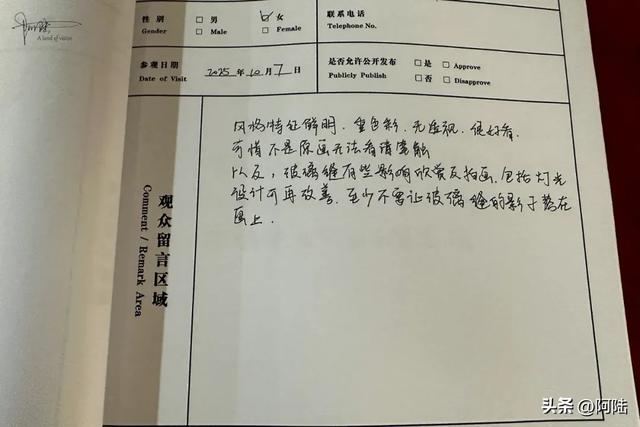 A land of vision
性 别
Gender
□ 男
□ Male
□ 女
□ Female
联系电话
Telephone No.
参观日期
Date of Visit
2025 年 10 月 7 日
是否允许公开发布
Publicly Publish
□ 是 □ Approve
□ 否 □ Disapprove
观众留言区域
Comment / Remark Area
风格特征鲜明.重色彩.无透视.很好看.
可惜不是原画无法看清笔触
以及,玻璃缝有些影响欣赏及拍画.包括灯光
设计可再改善.至少不要让玻璃缝的影子落在
画上.
头条 @阿陆